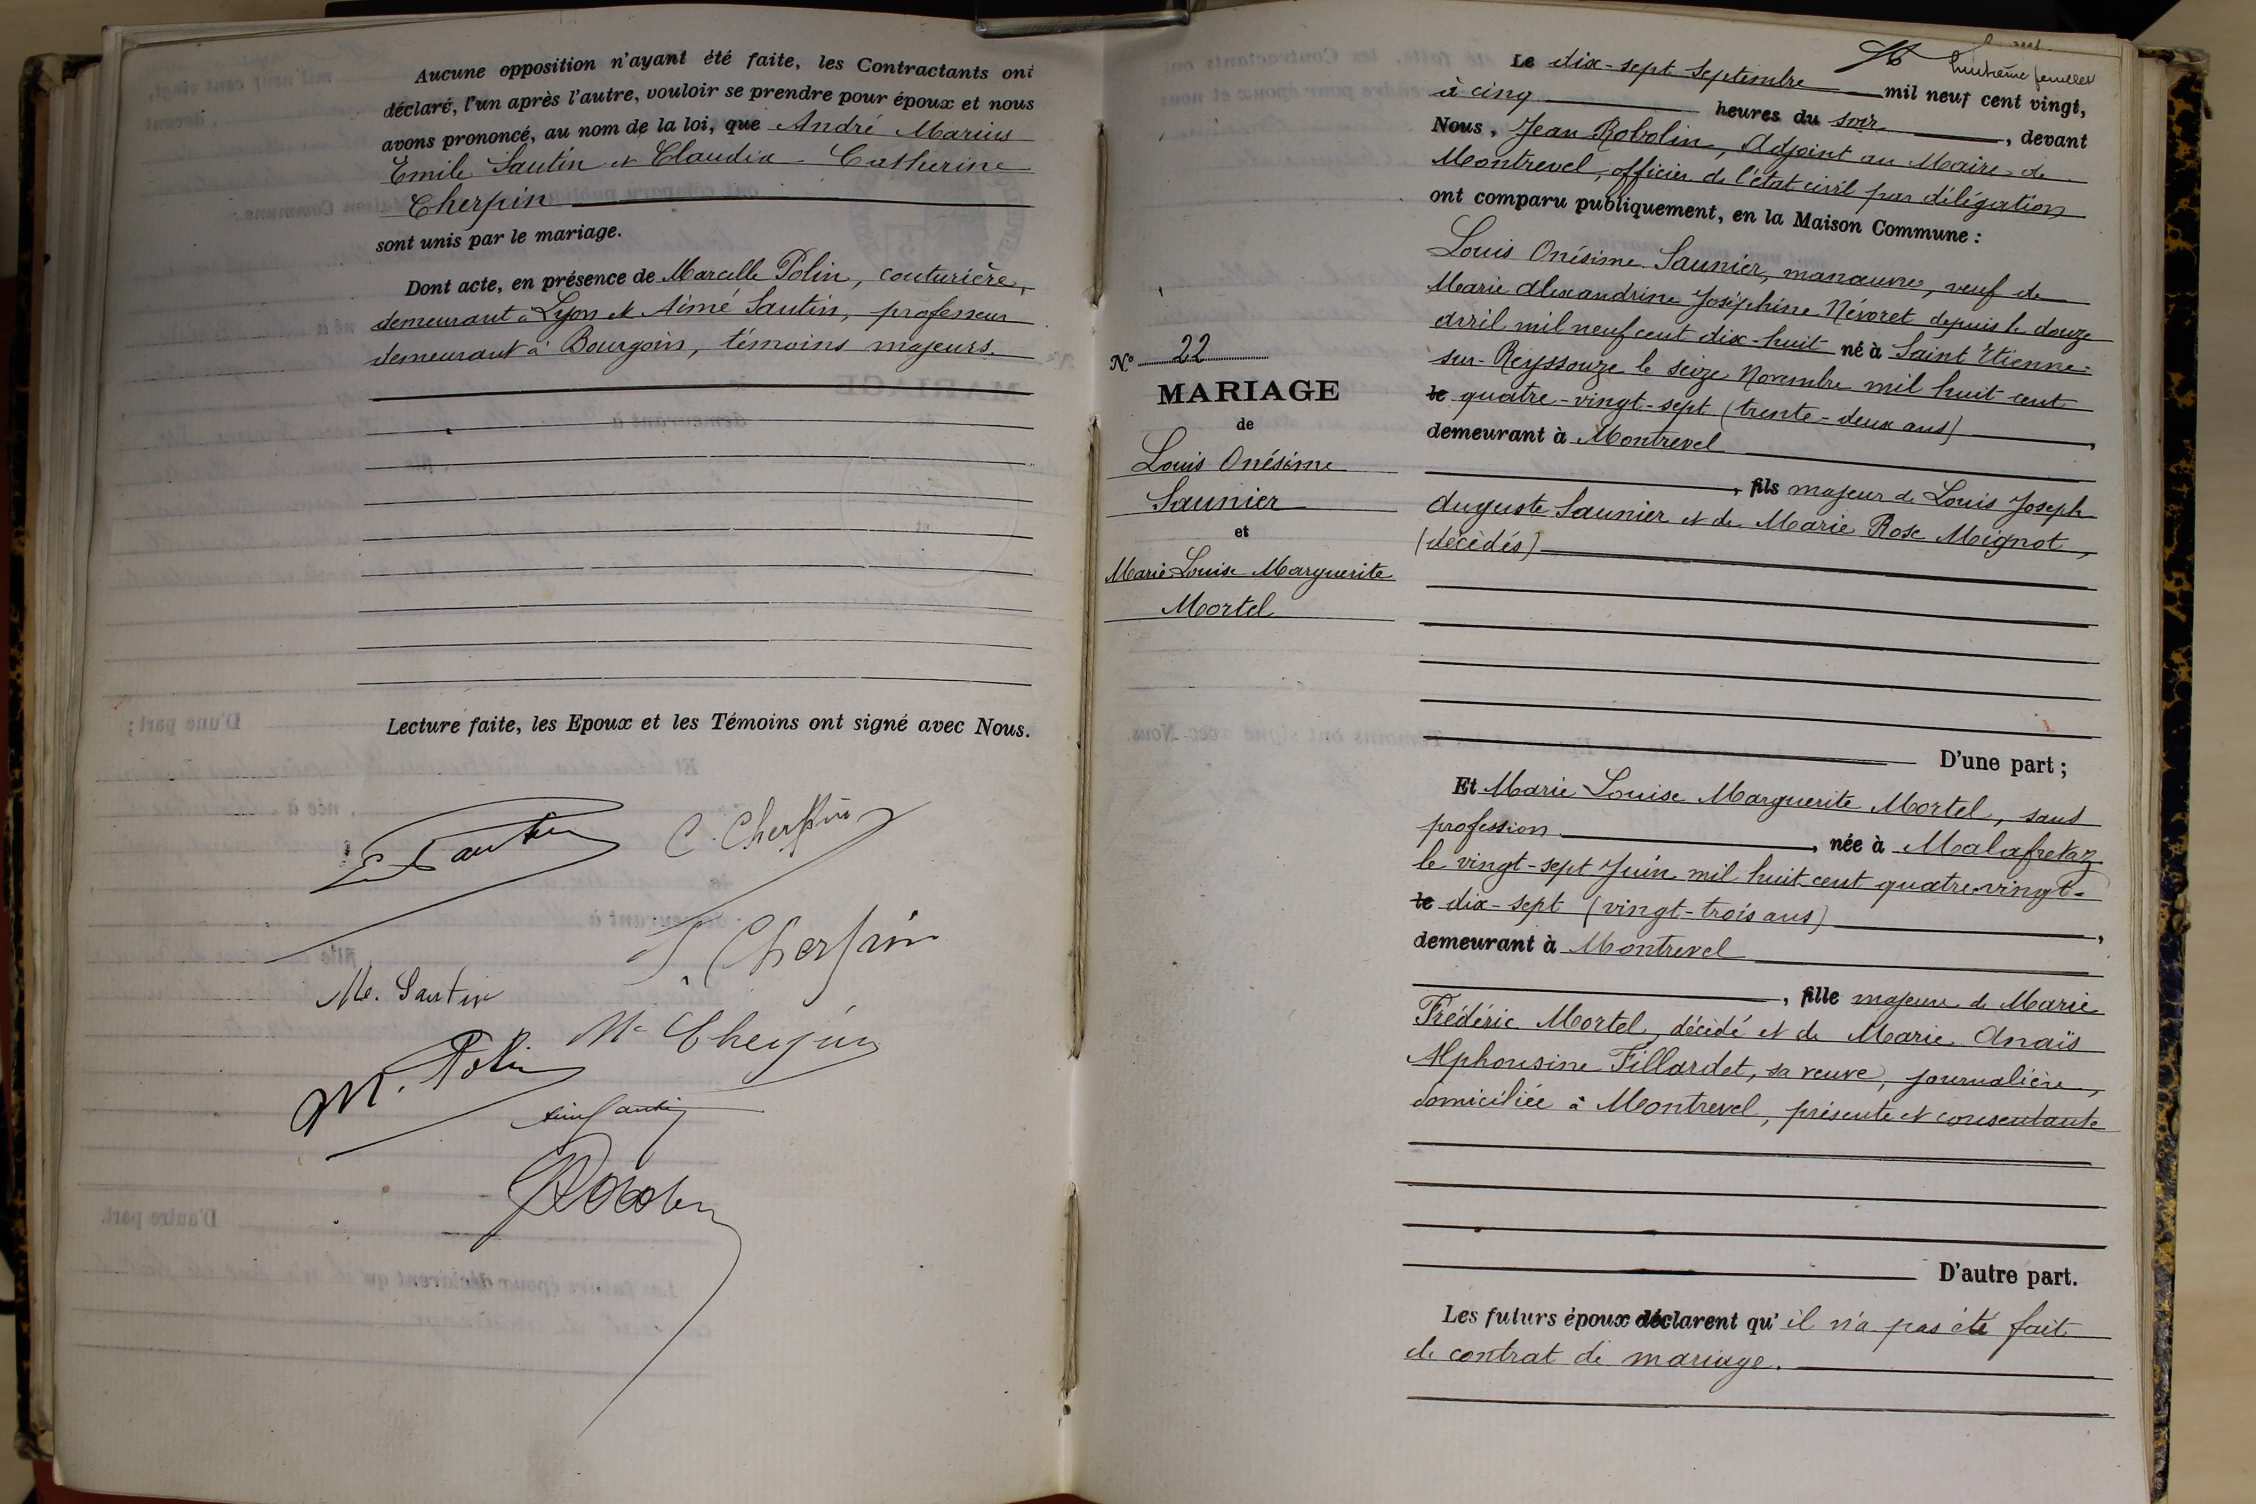 Aucune opposition n'ayant été faite, les Contractants ont
déclaré, l'un après l'autre, vouloir se prendre pour époux et nous
avons prononcé, au nom de la loi, que André Marius
Emile Sautin et Claudia Catherine
Cherpin
sont unis par le mariage.
Dont acte, en présence de Marcelle Polin, couturière,
demeurant à Lyon et Aimé Sautin, professeur
demeurant à Bourgoin, témoins majeurs.
Lecture faite, les Epoux et les Témoins ont signé avec Nous.
E. Sautin
C. Cherpin
Cherpin
M. Sautin
M. Cherpin
M. Polin
Aimé Sautin
Robolin
N° 22
MARIAGE
de
Louis Onésime
Saunier
et
Marie Louise Marguerite
Mortel
huitième feuillet
Le dix-sept Septembre mil neuf cent vingt,
à cinq heures du soir, devant
Nous, Jean Robolin, Adjoint au Maire de
Montrevel, officier de l'état civil par délégation
ont comparu publiquement, en la Maison Commune :
Louis Onésime Saunier, manœuvre, veuf de
Marie Alexandrine Joséphine Névoret depuis le douze
avril mil neuf cent dix-huit né à Saint Etienne-
sur-Reyssouze le seize Novembre mil huit cent
le quatre-vingt-sept (trente-deux ans),
demeurant à Montrevel
, fils majeur de Louis Joseph
Auguste Saunier et de Marie Rose Mignot,
(décédés)
D'une part ;
Et Marie Louise Marguerite Mortel, sans
profession, née à Malafretaz
le vingt-sept Juin mil huit cent quatre-vingt-
le dix-sept (vingt-trois ans),
demeurant à Montrevel
, fille majeure de Marie
Frédéric Mortel, décédé et de Marie Anaïs
Alphonsine Fillardet, sa veuve, journalière,
domiciliée à Montrevel, présente et consentante
D'autre part.
Les futurs époux déclarent qu'il n'a pas été fait
de contrat de mariage.